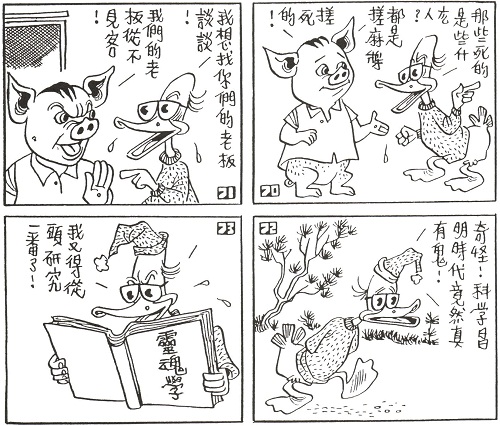 那些死的
是些什
么人?
都是
搓麻將
搓死
的!
70
我想找你們的老板
談談
!
我們的老
板從不
見客
!
71
奇怪!科學昌
明時代竟然真
有鬼!
72
我又得從
頭研究
一番了!
靈魂學
73